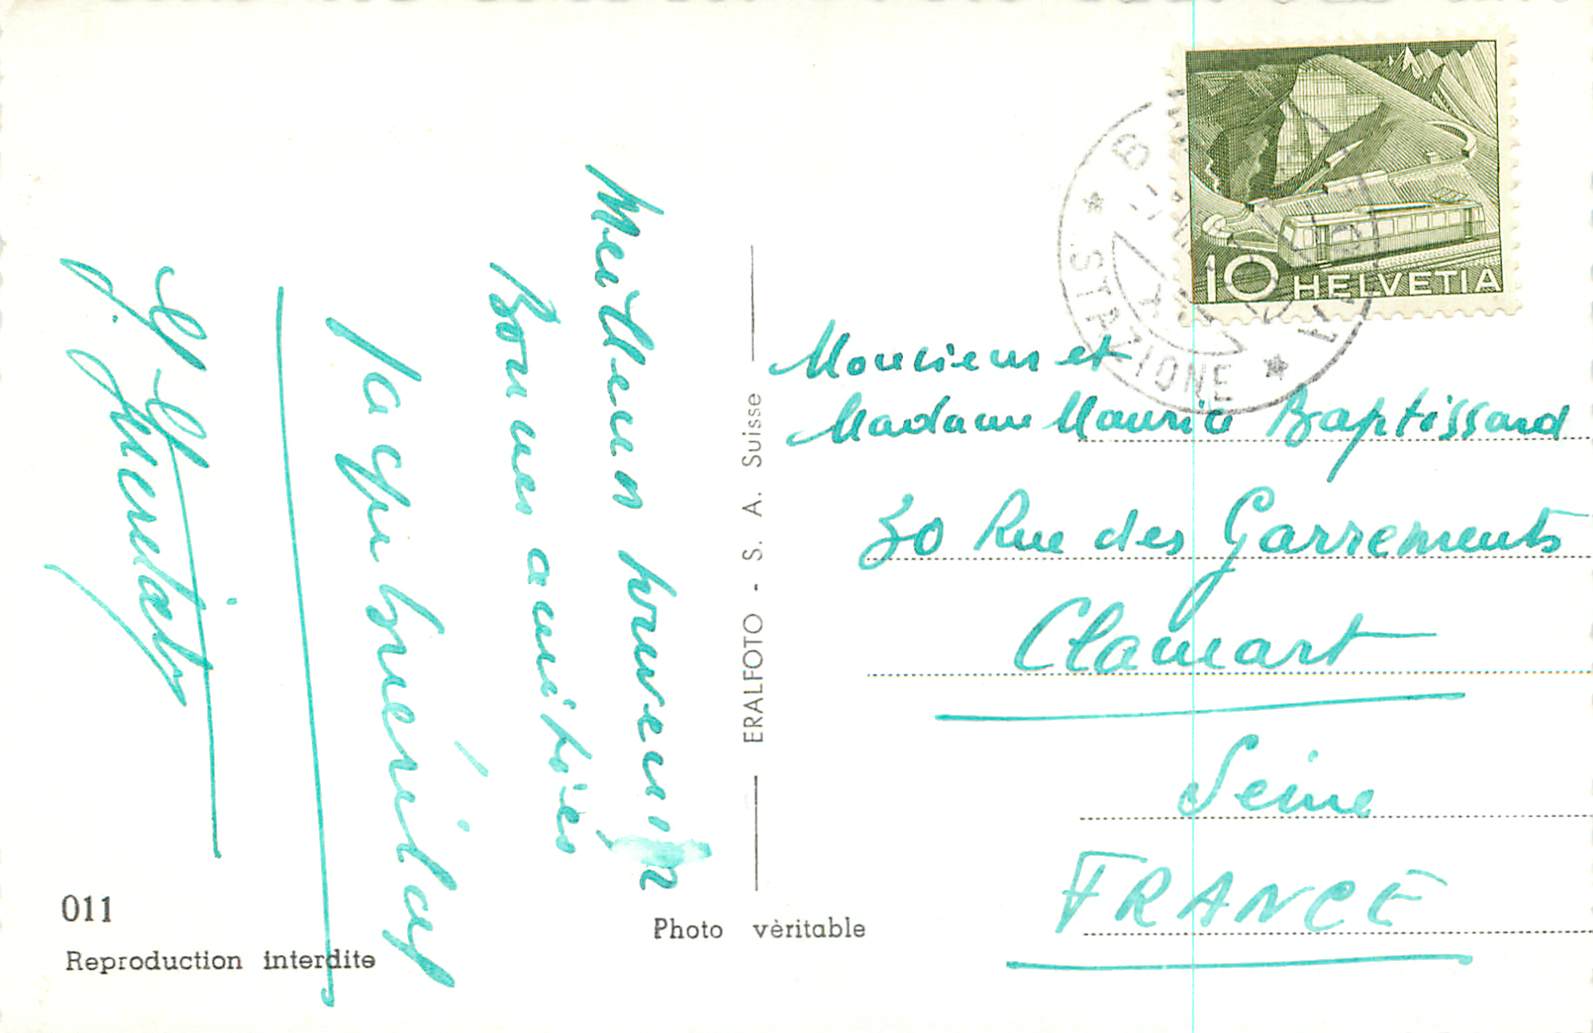 Meilleurs souvenirs
Bonnes amitiés
011
Reproduction interdite
Photo vèritable
ERALFOTO - S. A. Suisse
10 HELVETIA
STAZIONE
Monsieur et
Madame Maurice Baptissard
30 Rue des Garrements
Clamart
Seine
FRANCE